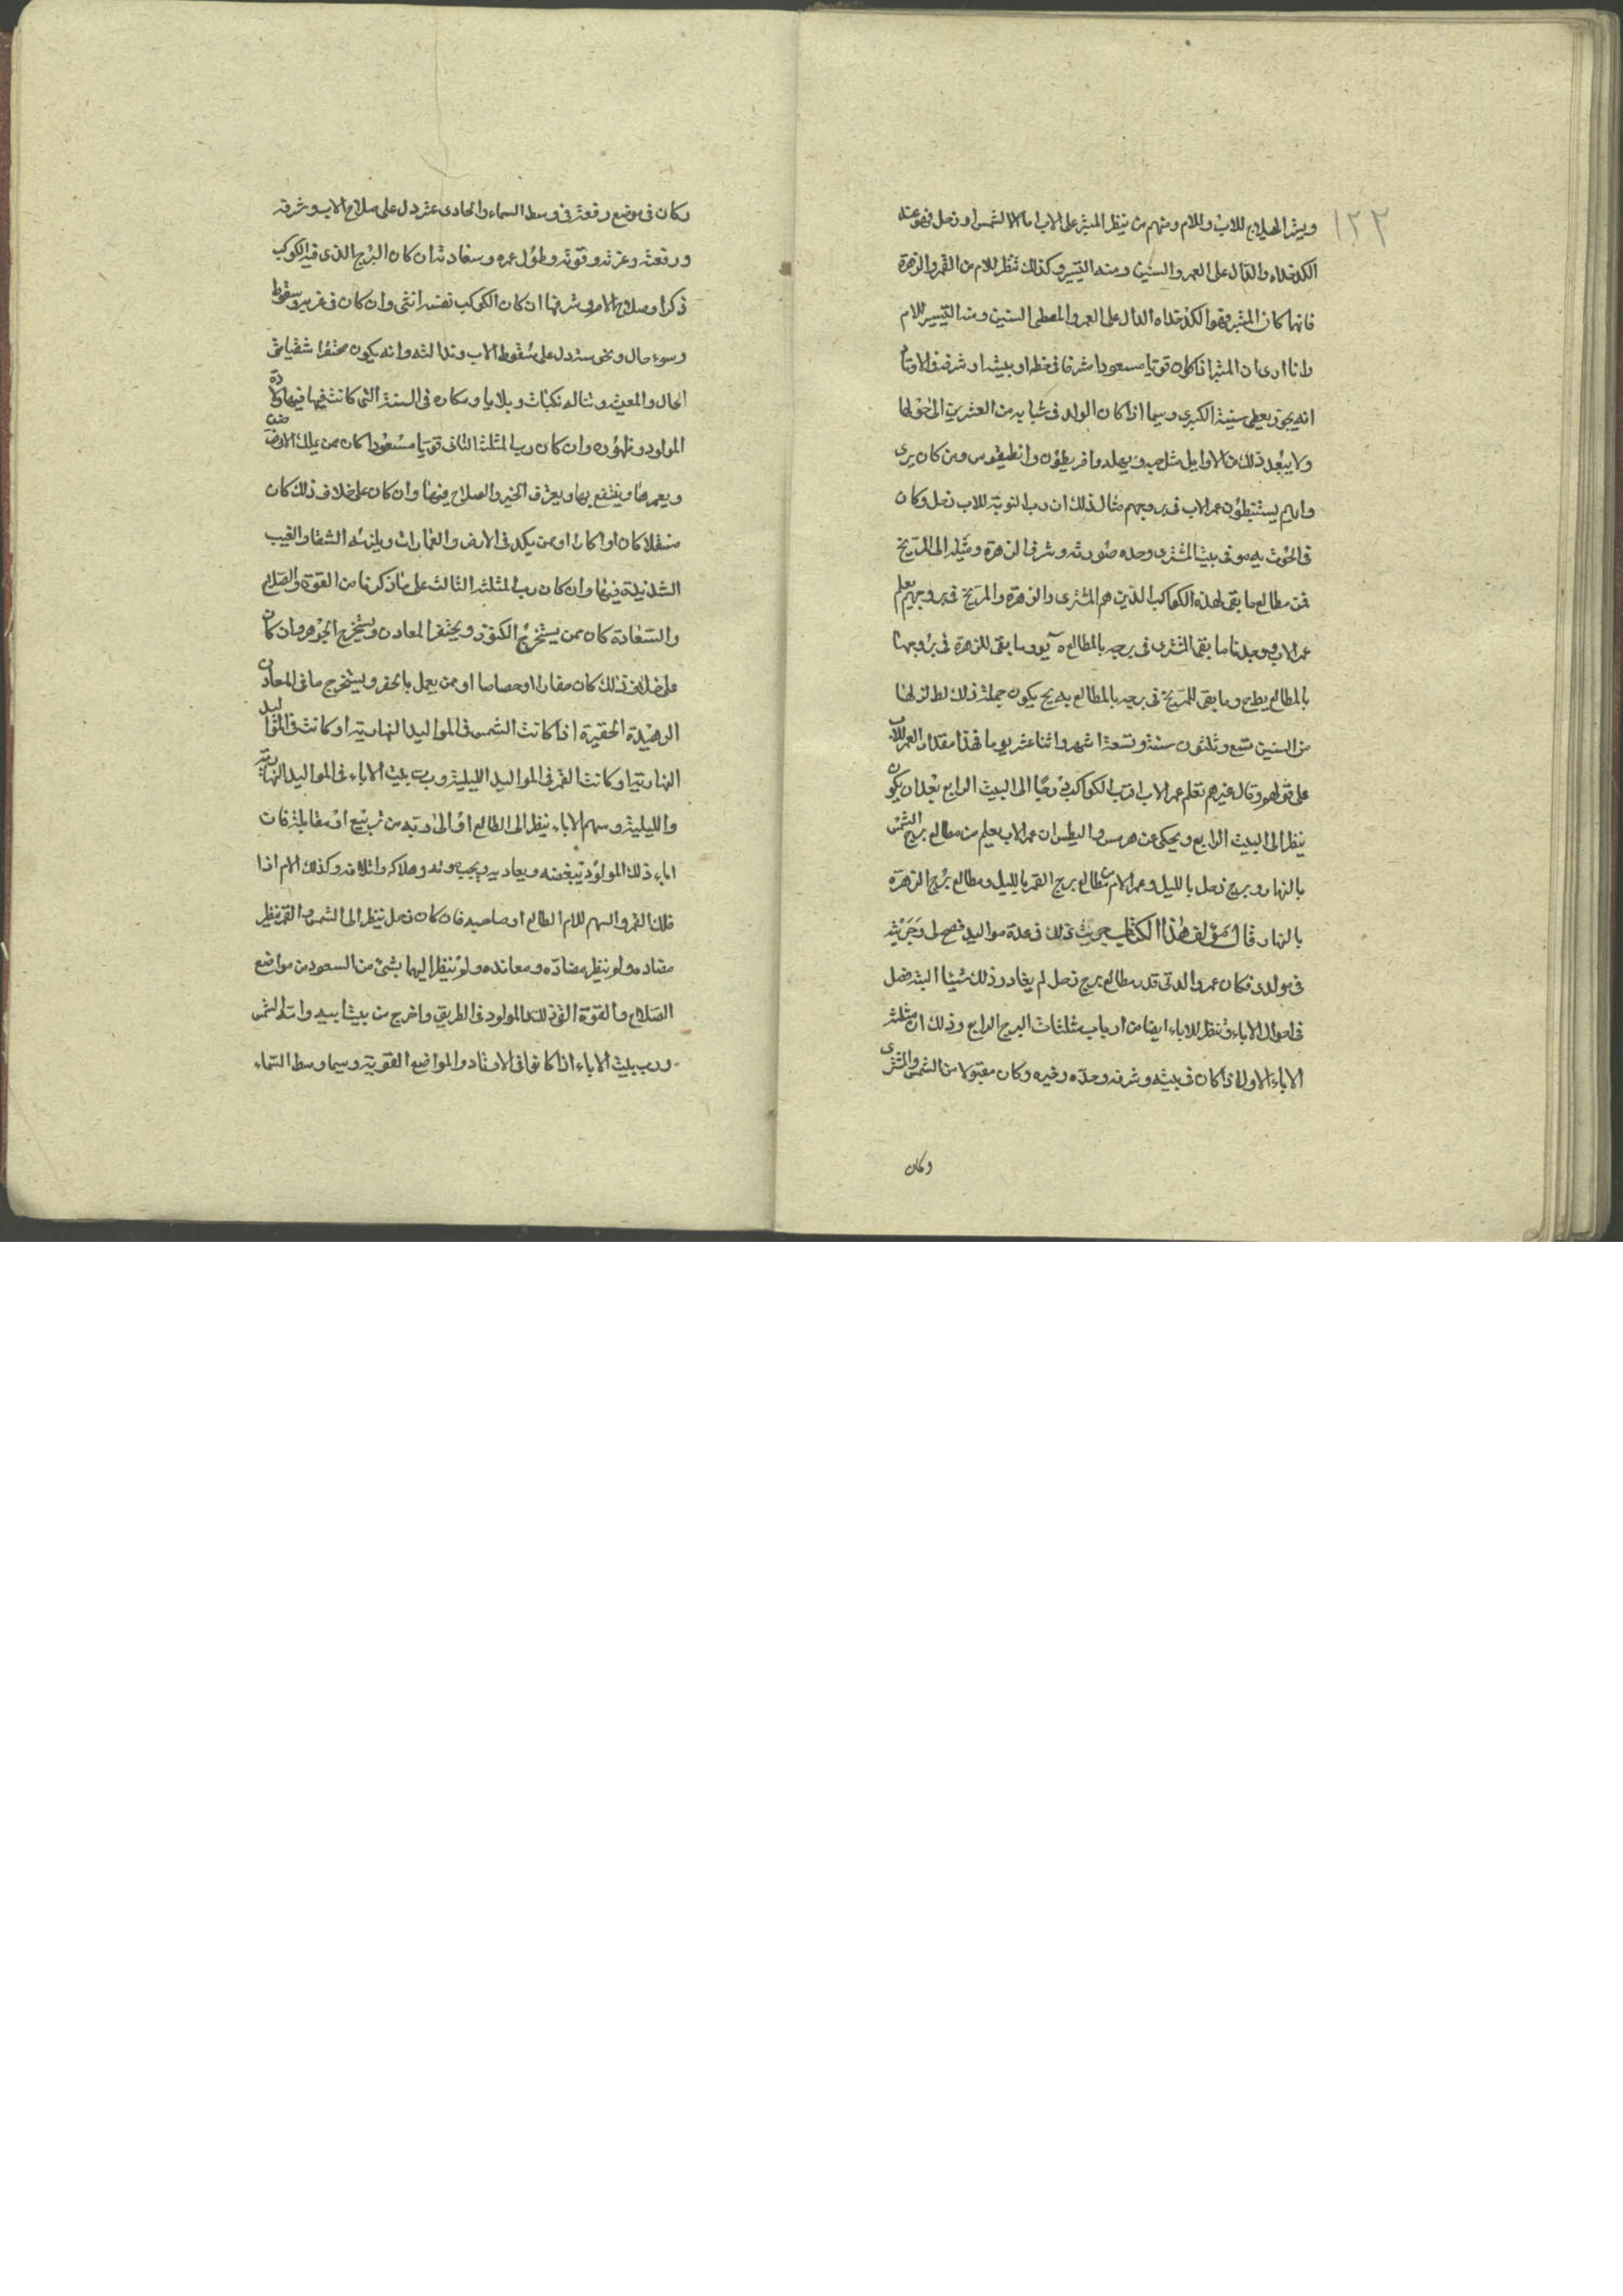 ١٢٢
ويبتز الهيلاج للاب وللام ومنهم من ينظر المبتز على الاب اما الشمس او زحل فهو عنده
الكدخداه والدال على العمر والسنين ومنه التسيير وكذلك تنظر للام من القمر والزهرة
فايهما كان المبتز فهو الكدخداه الدال على العمر والمعطى السنين ومنه التسيير للام
وانا ارى ان المبتز اذا كان قويا مسعودا مشرقا فى حظه او بيته او شرفه فى الاوتاد
انه يجوز يعطى سنيه الكبرى وسيما اذا كان الولد فى شبابه من العشرين الى حولها
ولا يبعد ذلك من الاوايل مثل وانطيقوس ومن كان يرى
رايهم يستنبطون عمر الاب فى بروجهم مثال ذلك ان رب النوبة للاب زحل وكان
فى الحوت يه وهو فى بيت المشترى وحده صورته وشرف الزهرة ومثلثه الى المريخ
فمن مطالع ما بقى لهذه الكواكب الذين هم المشترى والزهرة والمريخ فى بروجهم يعلم
عمر الاب فوجدنا ما بقى للمشترى فى برجه بالمطالع وما بقى للزهرة فى بروجها
بالمطالع وما بقى للمريخ فى برجه بالمطالع يكون جملة ذلك
من السنين تسع وثلثون سنة وتسعة اشهر واثنا عشر يوما فهذا مقدار العمر للاب
على قولهم وقال غيرهم نعلم عمر الاب اقرب الكواكب درجا الى البيت الرابع بعد ان يكون
ينظر الى البيت الرابع ويحكى عن هرمس واليطس ان عمر الاب يعلم من مطالع برج الشمس
بالنهار وبرج زحل بالليل وعمر الام من مطالع برج القمر بالليل ومطالع برج الزهرة
بالنهار قال مؤلف هذا الكتاب جربت ذلك فى عدة مواليد فصح لى وجربته
فى مولدى فكان عمر والدتى قدر مطالع برج زحل لم يغادر ذلك شيئا البتة فصل
فى احوال الاباء فننظر للاباء ايضا من ارباب مثلثات البرج الرابع وذلك ان مثلثة
الاباء الاولة اذا كان فى بيته وشرفه وحده وخيره وكان مقبولا من الشمس والمشترى
وكان
وكان فى موضع رفعة فى وسط السماء والحادى عشر دل على صلاح الاب وشرفه
ورفعته وعزته وقوته وطول عمره وسعادته ان كان البرج الذى فيه الكوكب
ذكرا وصلاح الام وشرفها ان كان الكوكب نفسه انثى وان كان فى غربه وسقوط
وسوء حال ونحوسته دل على سقوط الاب ونذالته وانه يكون محتقرا شقيا سئ
الحال والمعيشة وتناله نكبات وبلايا ومكاره فى السنة التى كانت فيها ولادة
المولود وظهوره وان كان رب المثلثة الثانى قويا مسعودا كان ممن يملك الارض
ويعمرها وينتفع بها ويعرف الخير والصلاح فيها وان كان على خلاف ذلك كان
متقلا كان او اكارا او ممن يكد فى الارض والعمارات ويلزمه الشقا والتعب
الشديد فيها وان كان رب المثلثة الثالث على ما ذكرنا من القوة والصلاح
والسعادة كان ممن يستخرج الكنوز ويحتفر المعادن ويستخرج الجوهر وان كان
على خلاف ذلك كان حفارا او جصاصا او ممن يعمل بالحفر ويستخرج ما فى المعادن
الزهيدة الحقيرة اذا كانت الشمس فى المواليد النهارية او كانت فى المواليد
النهارية او كانت القمر فى المواليد الليلية ورب بيت الاباء فى المواليد النهارية
والليلية وسهم الاباء ينظر الى الطالع او الى وتد من تربيع او مقابلة فان
اباء ذلك المولود يبغضه ويعاديه ويحب موته وهلاكه واتلافه وكذلك الام اذا
قلنا القمر والسهم للام الطالع او صاحبه فان كان زحل ينظر الى الشمس والقمر نظر
مضاده ولو نظر مضادة ومعانده ولو نظر اليهما بشئ من السعود من مواضع
الصلاح والقوة القى ذلك المولود فى الطريق واخرج من بيت ابيه وان الشمس
ورب بيت الاباء اذا كانوا فى الاوتاد والمواضع القوية وسيما وسط السماء